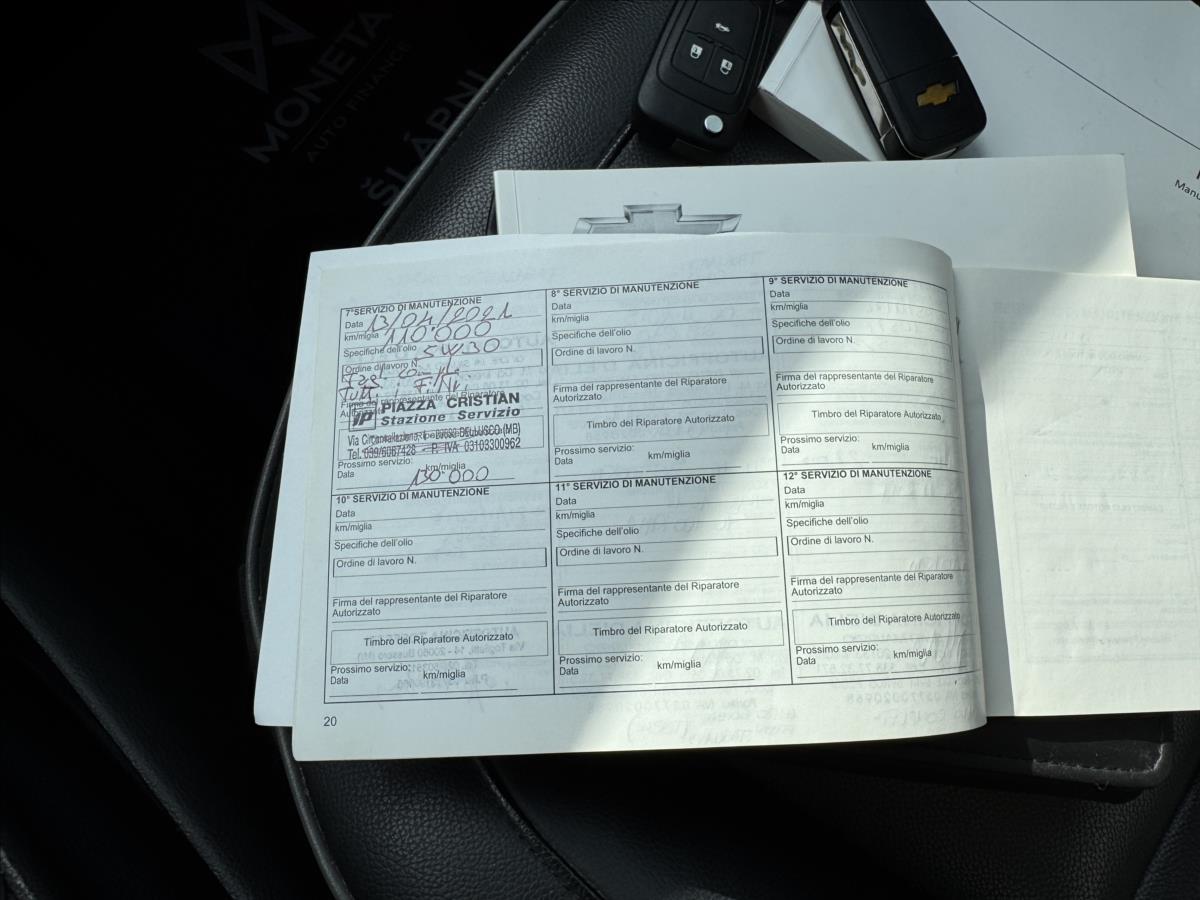 MONETA
AUTO FINANCE
ŠLÁPNI
Manu
7° SERVIZIO DI MANUTENZIONE
Data 13/04/2021
km/miglia 110.000
Specifiche dell'olio 5W30
Ordine di lavoro N.
Firma del rappresentante del Riparatore
Autorizzato
ip PIAZZA CRISTIAN
Stazione Servizio
Via Circonvallazione, BELLUSCO (MB)
Tel. 039/6067428 - P. IVA 03103300962
Prossimo servizio:
Data km/miglia
130.000
8° SERVIZIO DI MANUTENZIONE
Data
km/miglia
Specifiche dell'olio
Ordine di lavoro N.
Firma del rappresentante del Riparatore
Autorizzato
Timbro del Riparatore Autorizzato
Prossimo servizio:
Data km/miglia
9° SERVIZIO DI MANUTENZIONE
Data
km/miglia
Specifiche dell'olio
Ordine di lavoro N.
Firma del rappresentante del Riparatore
Autorizzato
Timbro del Riparatore Autorizzato
Prossimo servizio:
Data km/miglia
10° SERVIZIO DI MANUTENZIONE
Data
km/miglia
Specifiche dell'olio
Ordine di lavoro N.
Firma del rappresentante del Riparatore
Autorizzato
Timbro del Riparatore Autorizzato
Prossimo servizio:
Data km/miglia
11° SERVIZIO DI MANUTENZIONE
Data
km/miglia
Specifiche dell'olio
Ordine di lavoro N.
Firma del rappresentante del Riparatore
Autorizzato
Timbro del Riparatore Autorizzato
Prossimo servizio:
Data km/miglia
12° SERVIZIO DI MANUTENZIONE
Data
km/miglia
Specifiche dell'olio
Ordine di lavoro N.
Firma del rappresentante del Riparatore
Autorizzato
Timbro del Riparatore Autorizzato
Prossimo servizio:
Data km/miglia
20